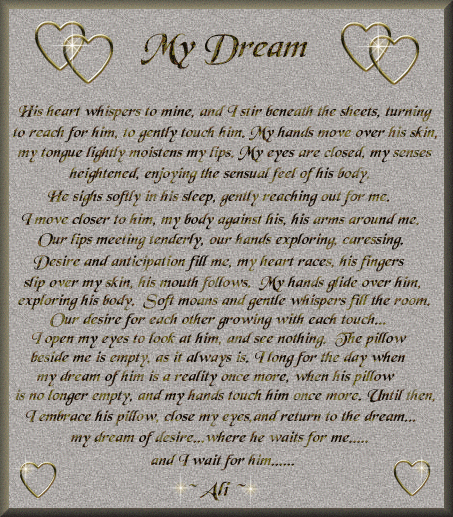 My Dream
His heart whispers to mine, and I stir beneath the sheets, turning
to reach for him, to gently touch him. My hands move over his skin,
my tongue lightly moistens my lips. My eyes are closed, my senses
heightened, enjoying the sensual feel of his body.
He sighs softly in his sleep, gently reaching out for me.
I move closer to him, my body against his, his arms around me.
Our lips meeting tenderly, our hands exploring, caressing.
Desire and anticipation fill me, my heart races, his fingers
slip over my skin, his mouth follows. My hands glide over him,
exploring his body. Soft moans and gentle whispers fill the room.
Our desire for each other growing with each touch...
I open my eyes to look at him, and see nothing. The pillow
beside me is empty, as it always is. I long for the day when
my dream of him is a reality once more, when his pillow
is no longer empty, and my hands touch him once more. Until then,
I embrace his pillow, close my eyes,and return to the dream...
my dream of desire...where he waits for me.....
and I wait for him......
~ Ali ~